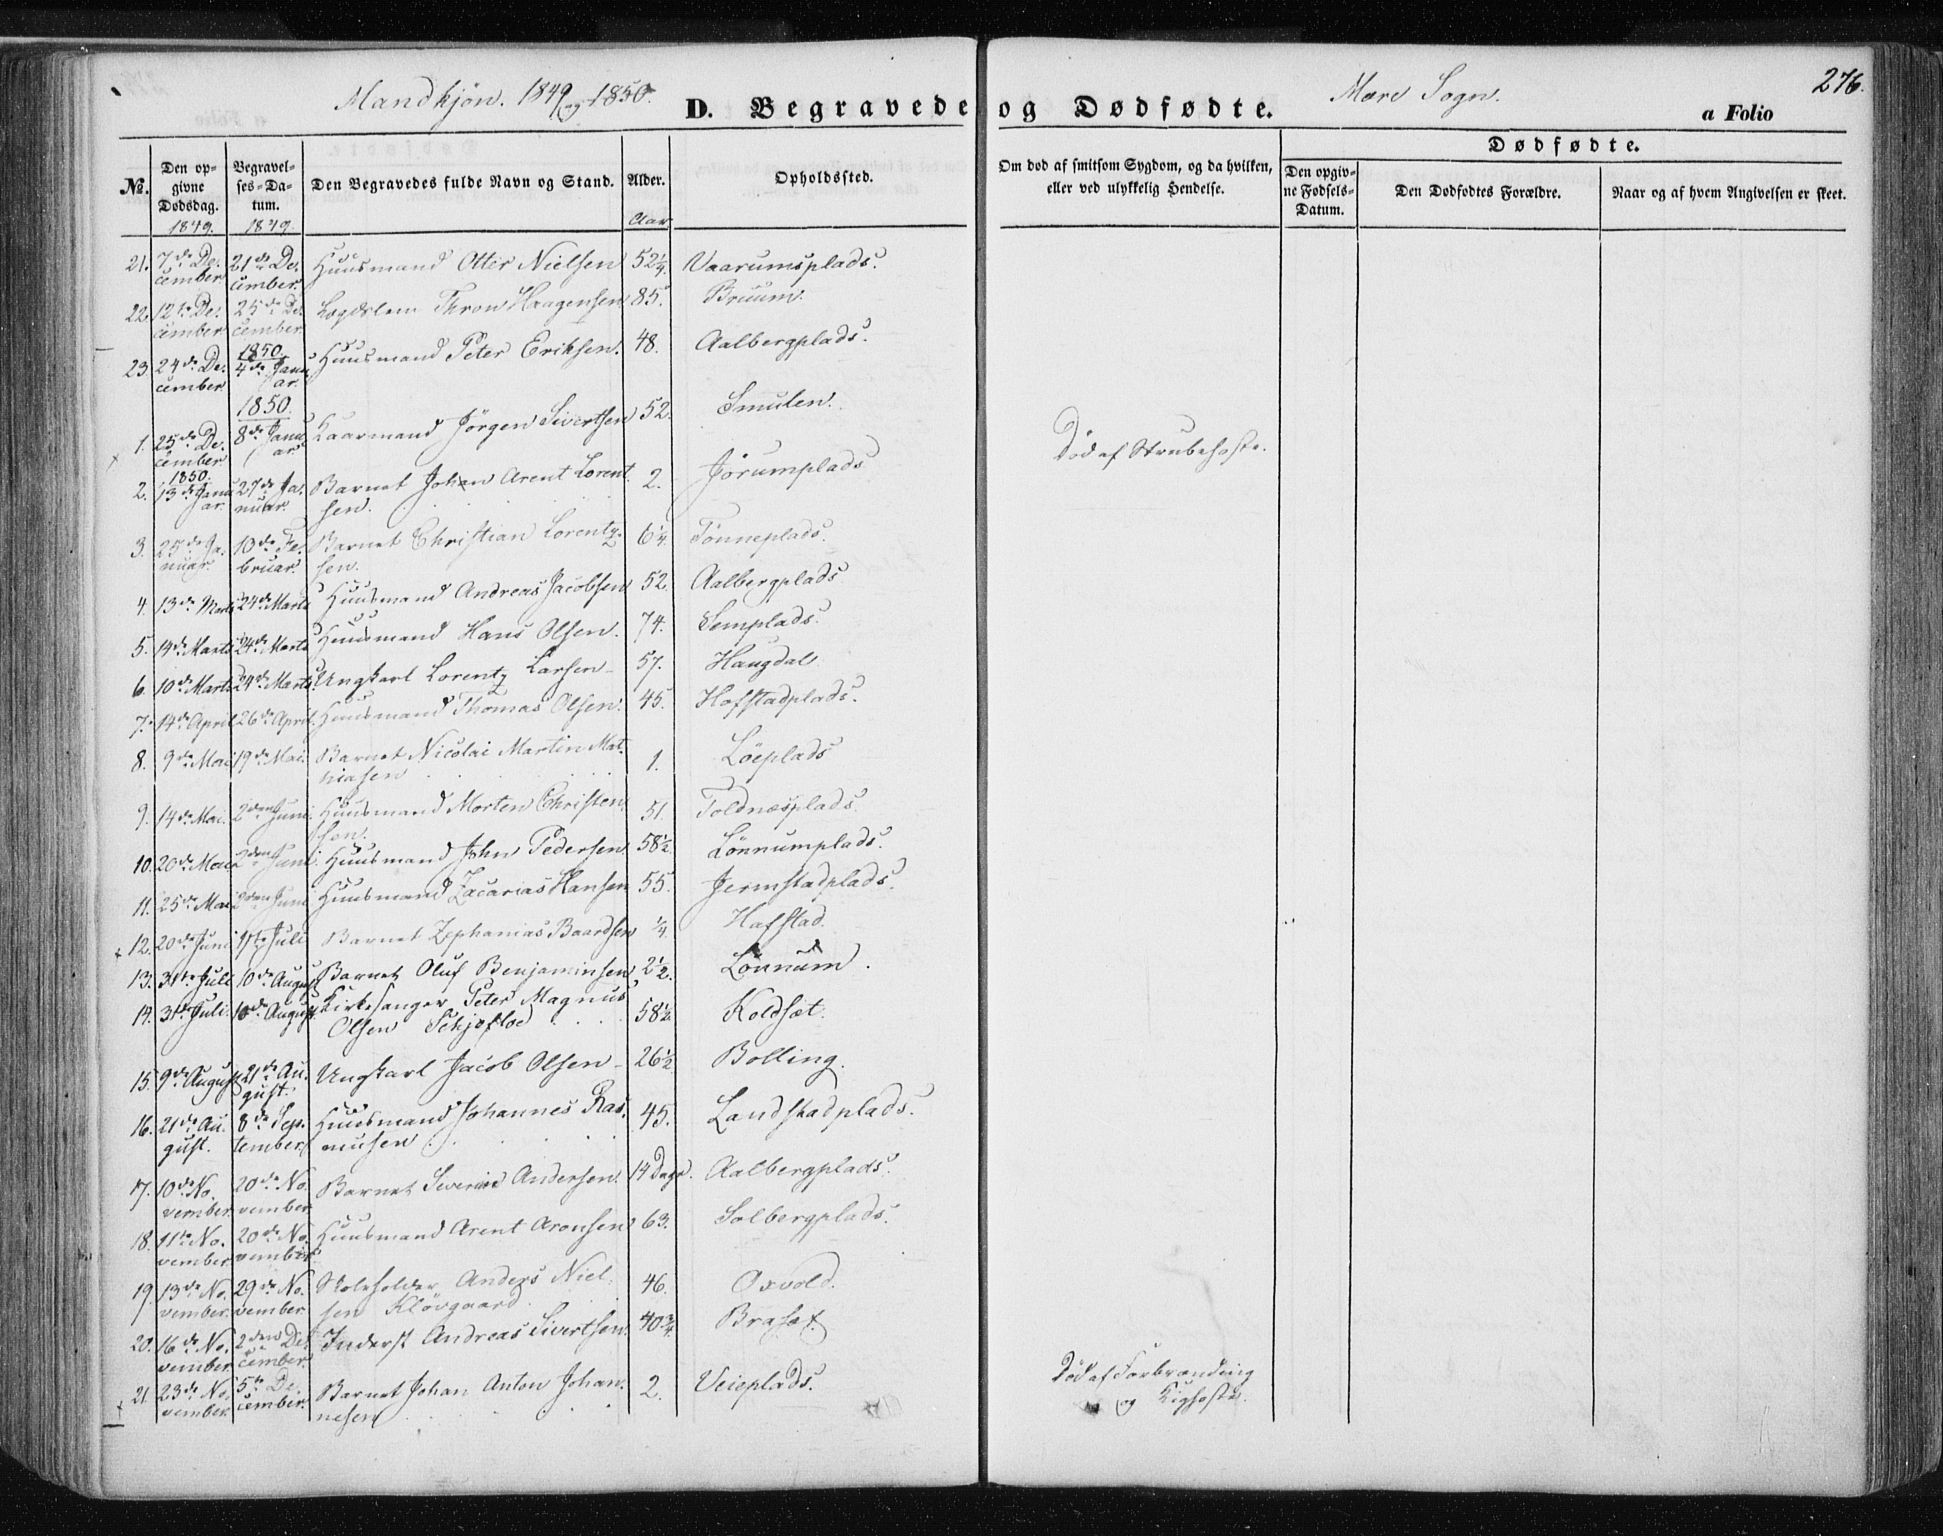 Mandkjön. 1849 og 1850.
D. Begravede og Dødfødte.
Mære Sogn.
276.
a Folio
No.
Den opgivne Dødsdag.
Begravelses-Datum.
Den Begravedes fulde Navn og Stand.
Alder.
Opholdssted.
Om død af smitsom Sygdom, og da hvilken, eller ved ulykkelig Hendelse.
Dødfødte.
Den opgivne Fødsels-Datum.
Den Dødfødtes Forældre.
Naar og af hvem Angivelsen er skeet.
1849. 1849. Aar
21. 7de December 21de December. Huusmand Otter Nielsen 52 1/4. Vaarumsplads.
22 12te December 25de December Lægdslem Thron Haagensen 85. Bruum.
23 24de December 1850. 4de Januar Huusmand Peter Eriksen. 48. Aalbergplads.
1850.
1. 25de December 8de Januar Kaarmand Jörgen Sivertsen 52. Smulen.
1850.
2. 13de Januar 27de Januar. Barnet Johan Arent Lorentsen. 2. Jörumplads Död af Strubehoste.
3. 25de Januar. 10de Februar. Barnet Christian Lorentzsen. 6 1/4. Tönneplads.
4. 13de Marts 24de Marts Huusmand Andreas Jacobsen 52. Aalbergplads
5. 14de Marts 24de Marts Huusmand Hans Olsen. 74. Semplads.
6. 10de Marts 24de Marts Ungkarl Lorentz Larsen 57. Haugdal
7. 14de April 26de April. Huusmand Thomas Olsen. 45. Hofstadplads.
8. 9de Mai 19de Mai. Barnet Nicolai Martin Mathiasen 1. Löeplads
9. 14de Mai. 2den Juni. Huusmand Morten Christensen. 51. Toldnæsplads
10. 20de Mai 2den Juni. Huusmand John Pedersen 58 1/2 Lönnumplads.
11. 25de Mai 2den Juni Huusmand Zacarias Hansen 55. Jermstadplads.
12. 20de Juni Juli Barnet Zephanias Baardsen 1/4. Hafstad.
13. 31te Juli 10de August Barnet Oluf Benjaminsen 2 1/2. Lönnum.
14. 31te Juli. 10de August. Kirkesanger Peter Magnus Olsen Schjefloe 58 1/2 Koldsæt.
15. 9de August 21de August. Ungkarl Jacob Olsen 26 1/2 Bolling.
16. 21de August. 8de September Huusmand Johannes Rasmusen 45. Landstadplads.
17. 10de November. 20de November Barnet Severin Andersen 14 Dage. Aalbergplads.
18. 11te November. 20de November Huusmand Arent Aronsen 63. Solbergplads.
19. 13de November. 29de November. Skoleholder Anders Nielsen Klövgaard 46. Oxvold.
20. 16de November. 2den December. Inderst Andreas Sivertsen. 40 3/4. Brasæt.
21. 23de November. 5te December. Barnet Johan Anton Johannesen 2. Veieplads. Död af Forbrænding og Kighoste.